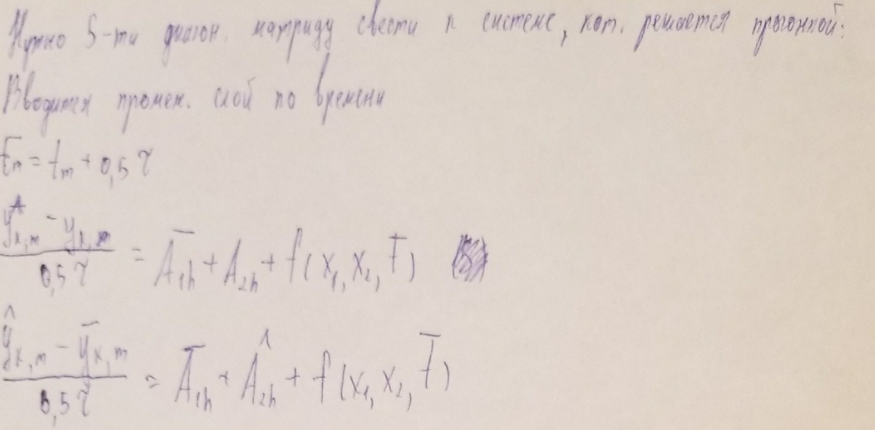 Нужно 5-ти диагон. матрицу свести к системе, кот. решается прогонкой:
Вводится промеж. слой по времени
t̄_m = t_m + 0,5 τ
(y_{x,m} - y_{x,m}) / (0,5 τ) = Ā_{1h} + A_{2h} + f(x_1, x_2, t̄)
(ŷ_{x,m} - ȳ_{x,m}) / (0,5 τ) = Ā_{1h} + Â_{2h} + f(x_1, x_2, t̄)